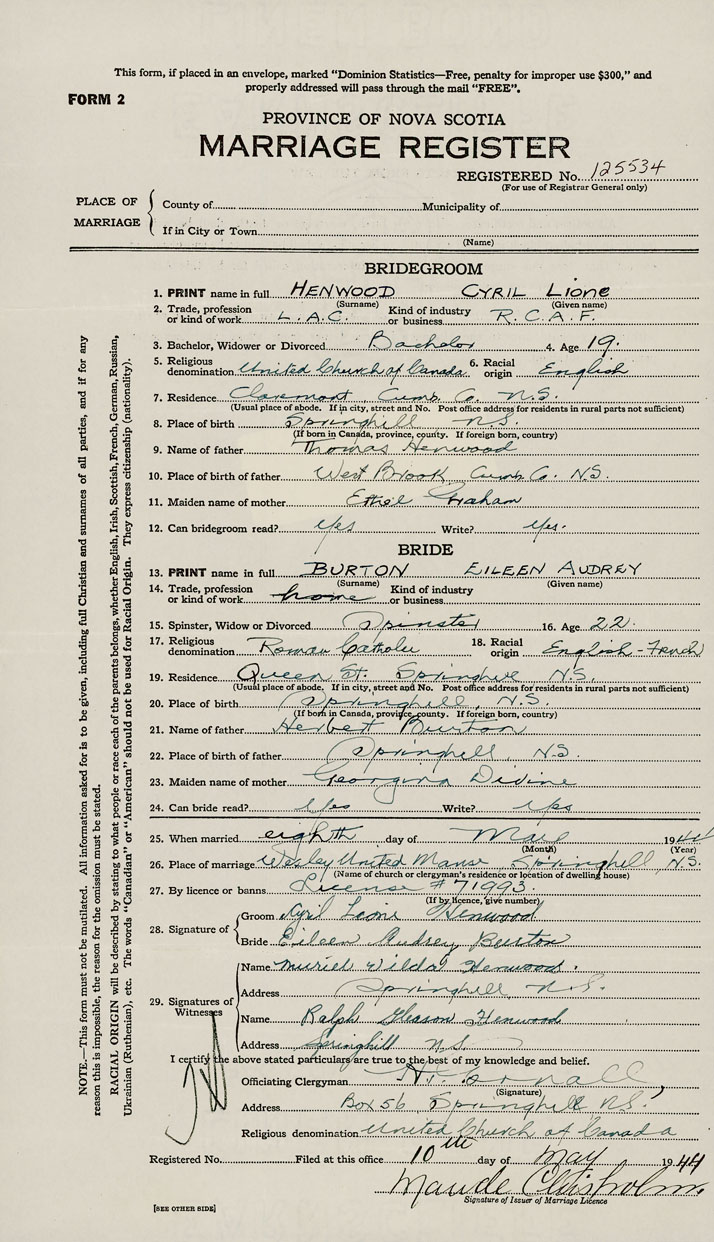 This form, if placed in an envelope, marked "Dominion Statistics—Free, penalty for improper use $300," and
properly addressed will pass through the mail "FREE".
FORM 2
PROVINCE OF NOVA SCOTIA
MARRIAGE REGISTER
REGISTERED No. 125534
(For use of Registrar General only)
PLACE OF MARRIAGE
County of
Municipality of
If in City or Town
(Name)
BRIDEGROOM
1. PRINT name in full HENWOOD CYRIL Lione
(Surname) (Given name)
2. Trade, profession or kind of work L.A.C. Kind of industry or business R.C.A.F.
3. Bachelor, Widower or Divorced Bachelor 4. Age 19.
5. Religious denomination United Church of Canada 6. Racial origin English
7. Residence Claremont Cumb. Co. N.S.
(Usual place of abode. If in city, street and No. Post office address for residents in rural parts not sufficient)
8. Place of birth Springhill N.S.
(If born in Canada, province, county. If foreign born, country)
9. Name of father Thomas Henwood
10. Place of birth of father West Brook Cumb. Co. N.S.
11. Maiden name of mother Ethel Graham
12. Can bridegroom read? Yes Write? Yes.
BRIDE
13. PRINT name in full BURTON EILEEN AUDREY
(Surname) (Given name)
14. Trade, profession or kind of work home Kind of industry or business
15. Spinster, Widow or Divorced Spinster 16. Age 22.
17. Religious denomination Roman Catholic 18. Racial origin English-French
19. Residence Queen St. Springhill N.S.
(Usual place of abode. If in city, street and No. Post office address for residents in rural parts not sufficient)
20. Place of birth Springhill, N.S.
(If born in Canada, province, county. If foreign born, country)
21. Name of father Herbert Burton
22. Place of birth of father Springhill, N.S.
23. Maiden name of mother Georgina Divine
24. Can bride read? Yes Write? Yes
25. When married eighth day of May 1944
(Month) (Year)
26. Place of marriage Wesley United Manse, Springhill N.S.
(Name of church or clergyman's residence or location of dwelling house)
27. By licence or banns License #71993.
(If by licence, give number)
28. Signature of
Groom Cyril Lione Henwood
Bride Eileen Audrey Burton
29. Signatures of Witnesses
Name Muriel Wilda Henwood.
Address Springhill N.S.
Name Ralph Gleason Henwood
Address Springhill N.S.
I certify the above stated particulars are true to the best of my knowledge and belief.
Officiating Clergyman
(Signature)
Address Box 56, Springhill N.S.
Religious denomination United Church of Canada
Registered No. Filed at this office 10th day of May 1944
Maude Chisholm.
Signature of Issuer of Marriage Licence
[SEE OTHER SIDE]
NOTE.—This form must not be mutilated. All information asked for is to be given, including full Christian and surnames of all parties, and if for any
reason this is impossible, the reason for the omission must be stated.
RACIAL ORIGIN will be described by stating to what people or race each of the parents belongs, whether English, Irish, Scottish, French, German, Russian,
Ukrainian (Ruthenian), etc. The words "Canadian" or "American" should not be used for Racial Origin. They express citizenship (nationality).